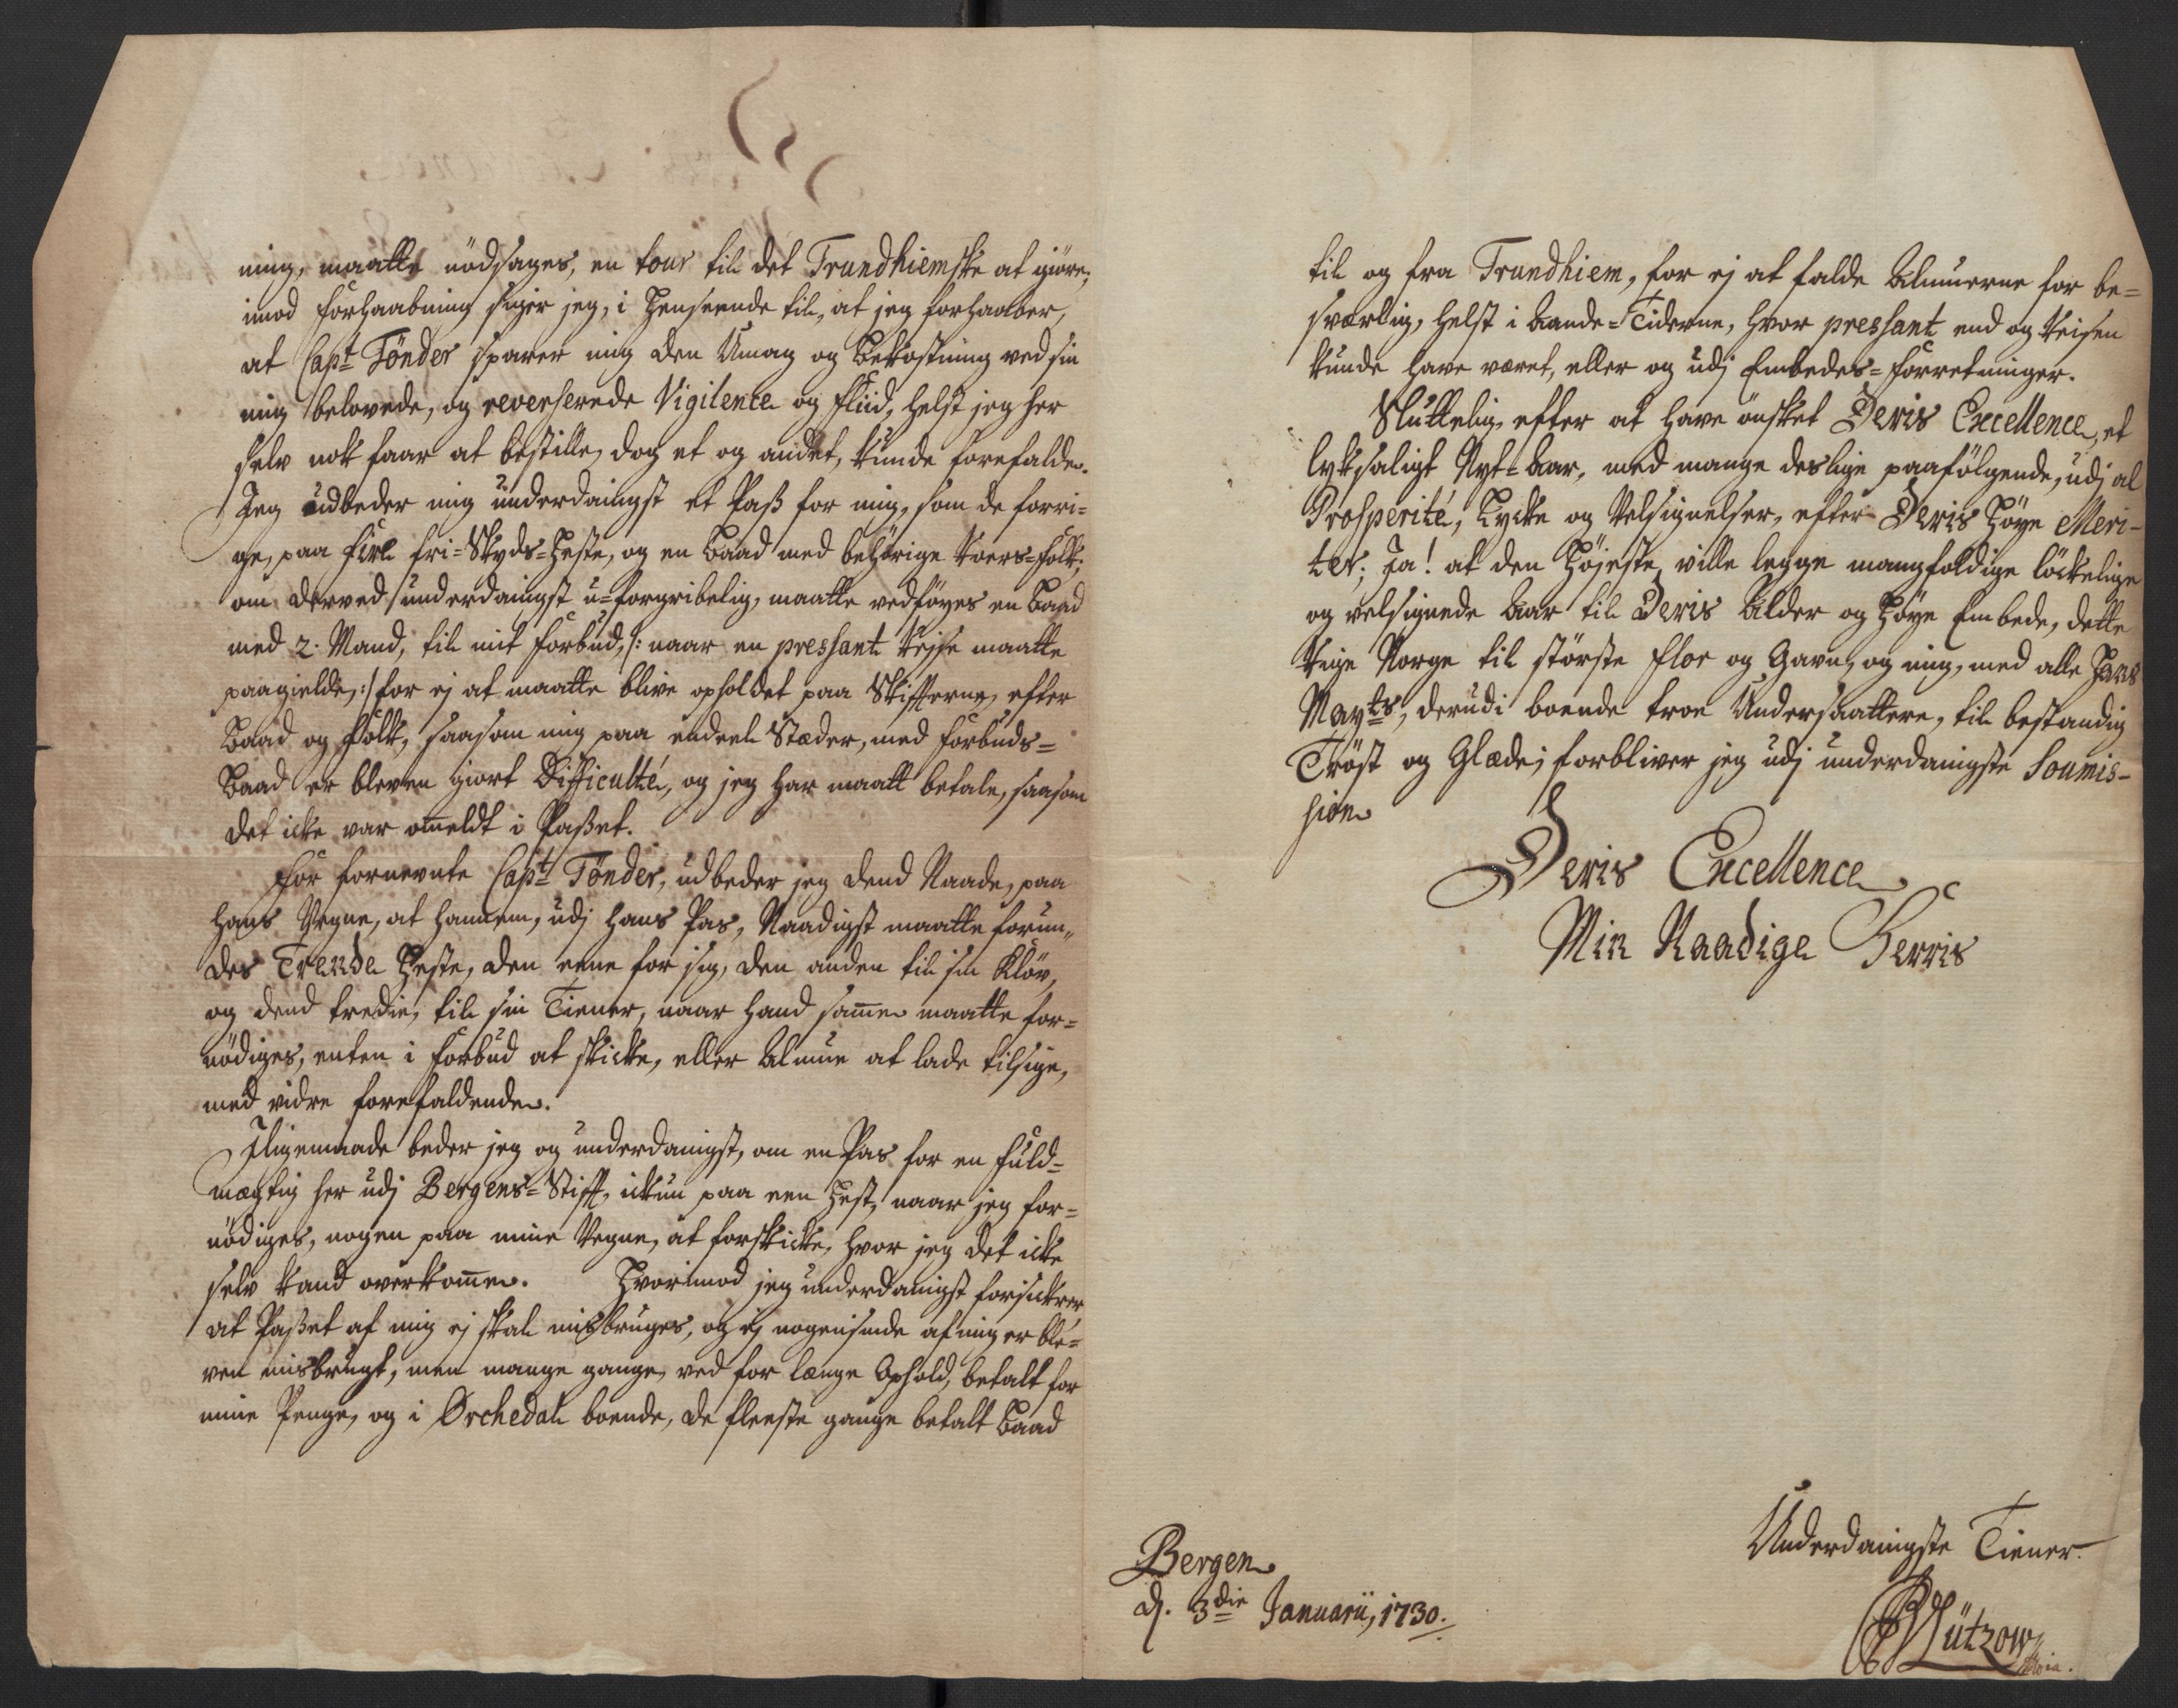 ning, maatte nödsages, en tour til det Trundhiemske at giöre;
imod Forhaabning siger jeg, i Henseende til, at jeg forhaaber,
at Capt Tönder sparer mig den Umag og Bekostning ved sin
mig belovede, og reverserede Vigilence og Fliid, helst jeg her
selv nok faar at bestille, dog et og andet, kunde forefalde.
Jeg udbeder mig underdanigst et Pass for mig, som de forri=
ge, paa Fire fri=Skyds=Heste, og en Baad med behörige Roers=Folk;
om derved underdanigst u=forgribelig, maatte vedföyes en Baad
med 2. Mand, til mit Forbud, /: naar en pressant Rejse maatte
paagielde, :/ for ej at maatte blive opholdet paa Skifferne, efter
Baad og Folk, saasom mig paa endeel Stæder, med Forbuds=
Baad er bleven giort Difficulté, og jeg har maatt betale, saasom
det icke var omeldt i Passet.
For fornevnte Capt Tönder, udbeder jeg dend Naade, paa
hans Vegne, at hannem, udj hans Pas, Naadigst maatte forun,,
des Trende Heste, den eene for sig, den anden til sin Klöv,
og dend tredie, til sin Tiener, naar hand same maatte for=
nödiges, enten i Forbud at skicke, eller Almue at lade tilsige,
med vidre forefaldende.
Iligemaade beder jeg og underdanigst, om en Pas for en Fuld=
mægtig her udj Bergens=Stift, ickun paa een Hest, naar jeg for=
nödiges, nogen paa mine Vegne, at forskicke, hvor jeg det icke
selv kand overkome. Hvorimod jeg underdanigst forsickrer
at Passet af mig ej skal misbruges, og ej nogensinde af mig er ble=
ven misbrugt, men mange gange, ved for længe Ophold, betalt for
mine Penge, og i Orchedal boende, de fleeste gange betalt Baad
til og fra Trundhiem, for ej at falde Almuerne for be=
sværlig, helst i Aande=Tiderne, hvor pressant end og Reisen
kunde have været, eller og udj Embedes=Forretninger.
Sluttelig, efter at have önsket Deris Excellence, et
lyksaligt Nyt=Aar, med mange deslige paafölgende, udj al
Prosperité, Lycke og Velsignelser, efter Deris Höye Meri-
ter; Ja! at den Höjeste, ville legge mangfoldige löckelige
og velsignede Aar til Deris Alder og Höye Embede, dette
Rige Norge til störste Flor og Gavn, og mig, med alle Hans
Mayts, derudi boende troe Undersaattere, til bestandig
Tröst og Glæde; forbliver jeg udj underdanigste Soumis-
sion
Deris Excellence
Min Naadige Herris
Underdanigste Tiener.
Bergen
d. 3die Januarii, 1730.
Lützow